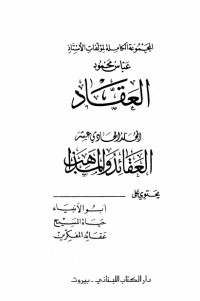 المجموعة الكاملة لمؤلفات الأستاذ
عباس محمود
العقاد
المجلد الحادي عشر
العقائد والمذاهب
يحتوي على
أبو الأنبياء
حياة المسيح
عقائد المفكرين
دار الكتاب اللبناني - بيروت